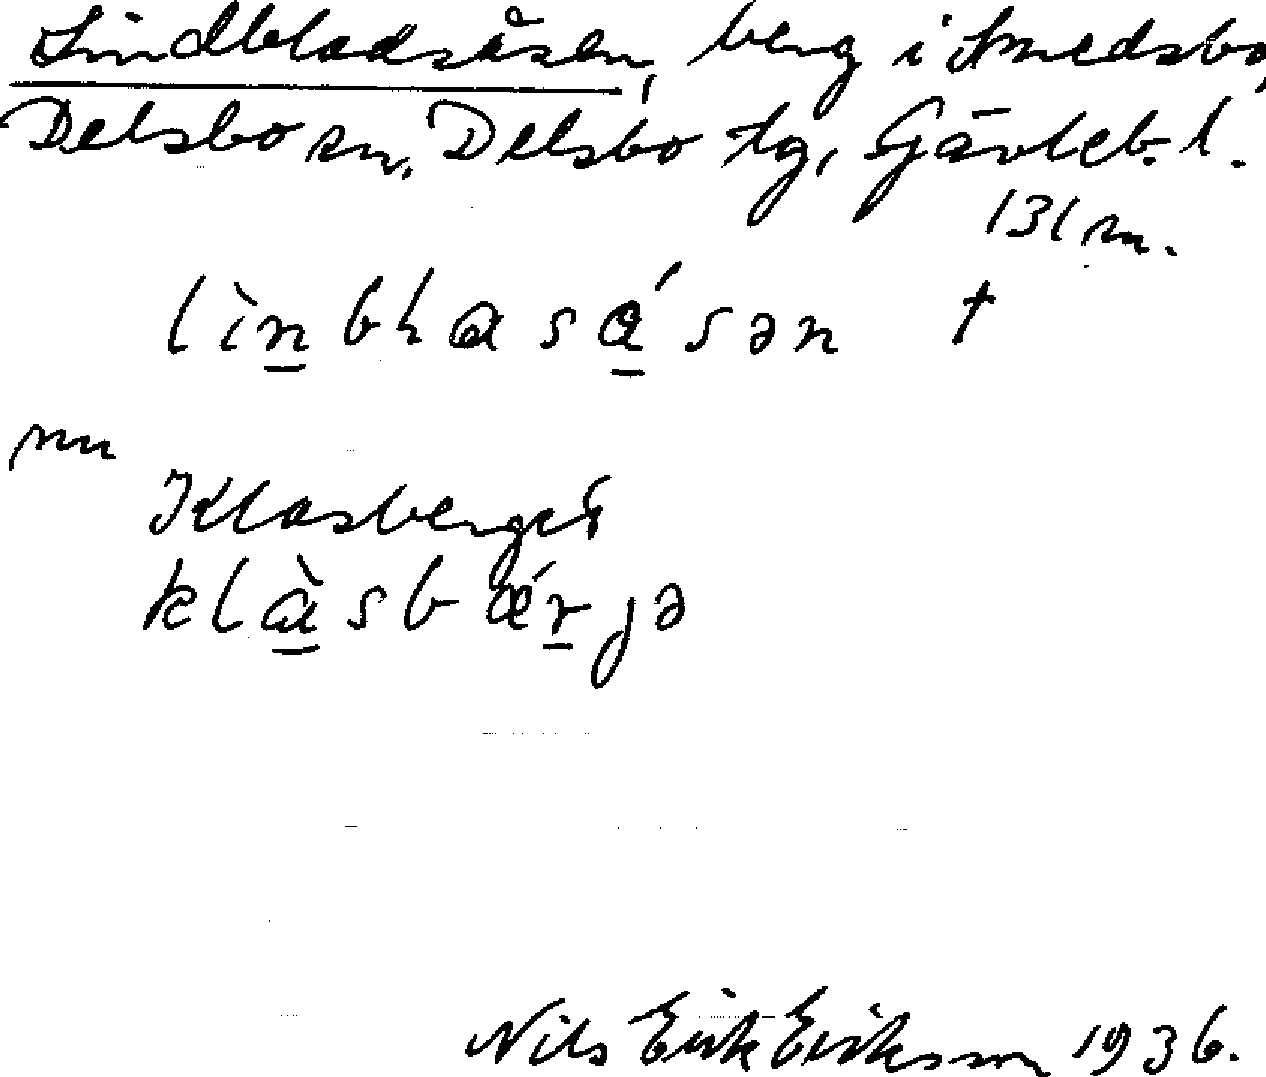 Lindbladsåsen, berg i Smedsbo,
Delsbo sn, Delsbo tg, Gävleb. l.
131 m.
lìn̲blasá̲sən †
nu
Klasberget
klà̲sbǽr̲jə
Nils Erik Eriksson 1936.